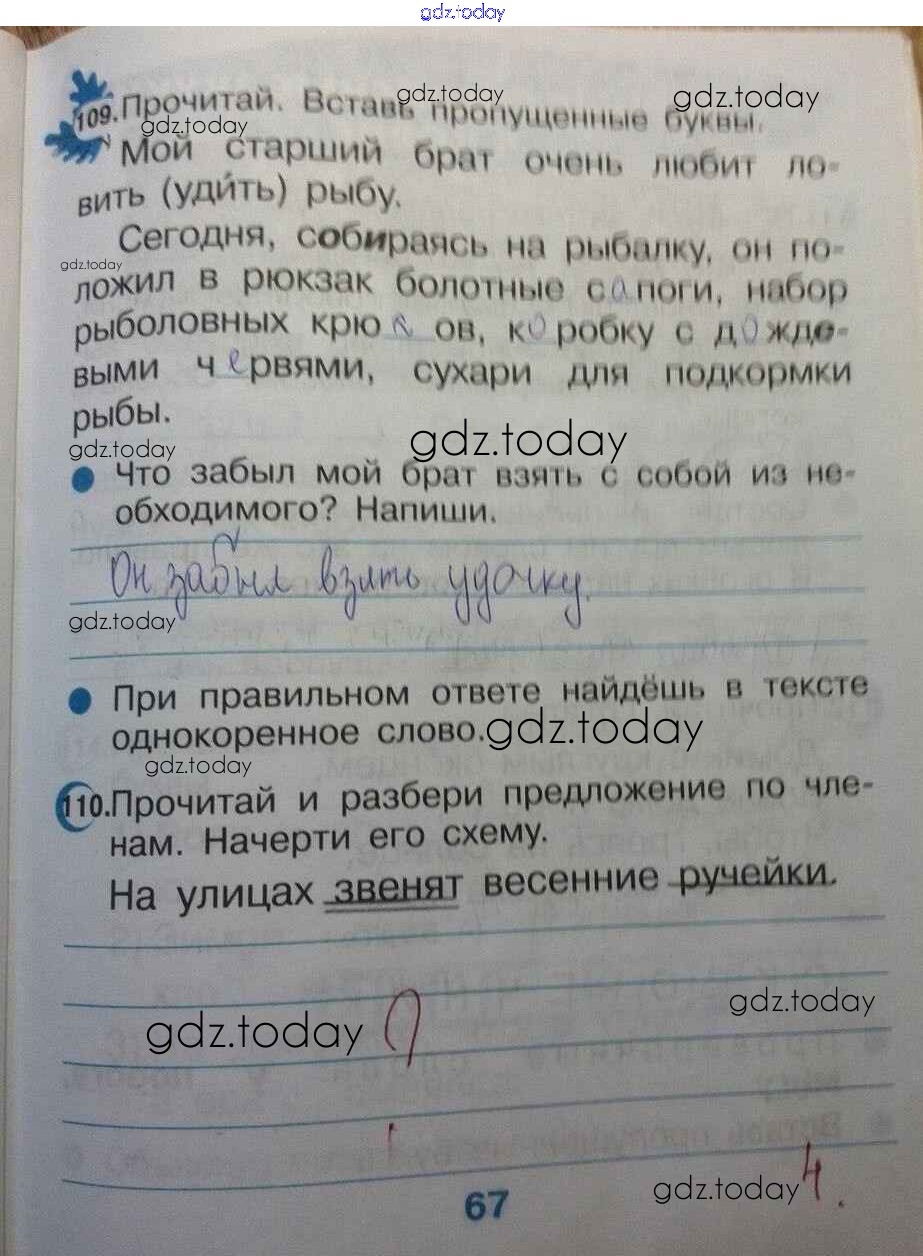 gdz.today
109. Прочитай. Вставь пропущенные буквы.
gdz.today gdz.today gdz.today
Мой старший брат очень любит ло-
вить (уди́ть) рыбу.
Сегодня, собираясь на рыбалку, он по-
gdz.today
ложил в рюкзак болотные сапоги, набор
рыболовных крюков, коробку с дожде-
выми червями, сухари для подкормки
рыбы.
gdz.today gdz.today
Что забыл мой брат взять с собой из не-
обходимого? Напиши.
Он забыл взять удочку.
gdz.today
При правильном ответе найдёшь в тексте
однокоренное слово. gdz.today
gdz.today
110. Прочитай и разбери предложение по чле-
нам. Начерти его схему.
На улицах звенят весенние ручейки.
gdz.today
gdz.today ?
!
gdz.today 4.
67